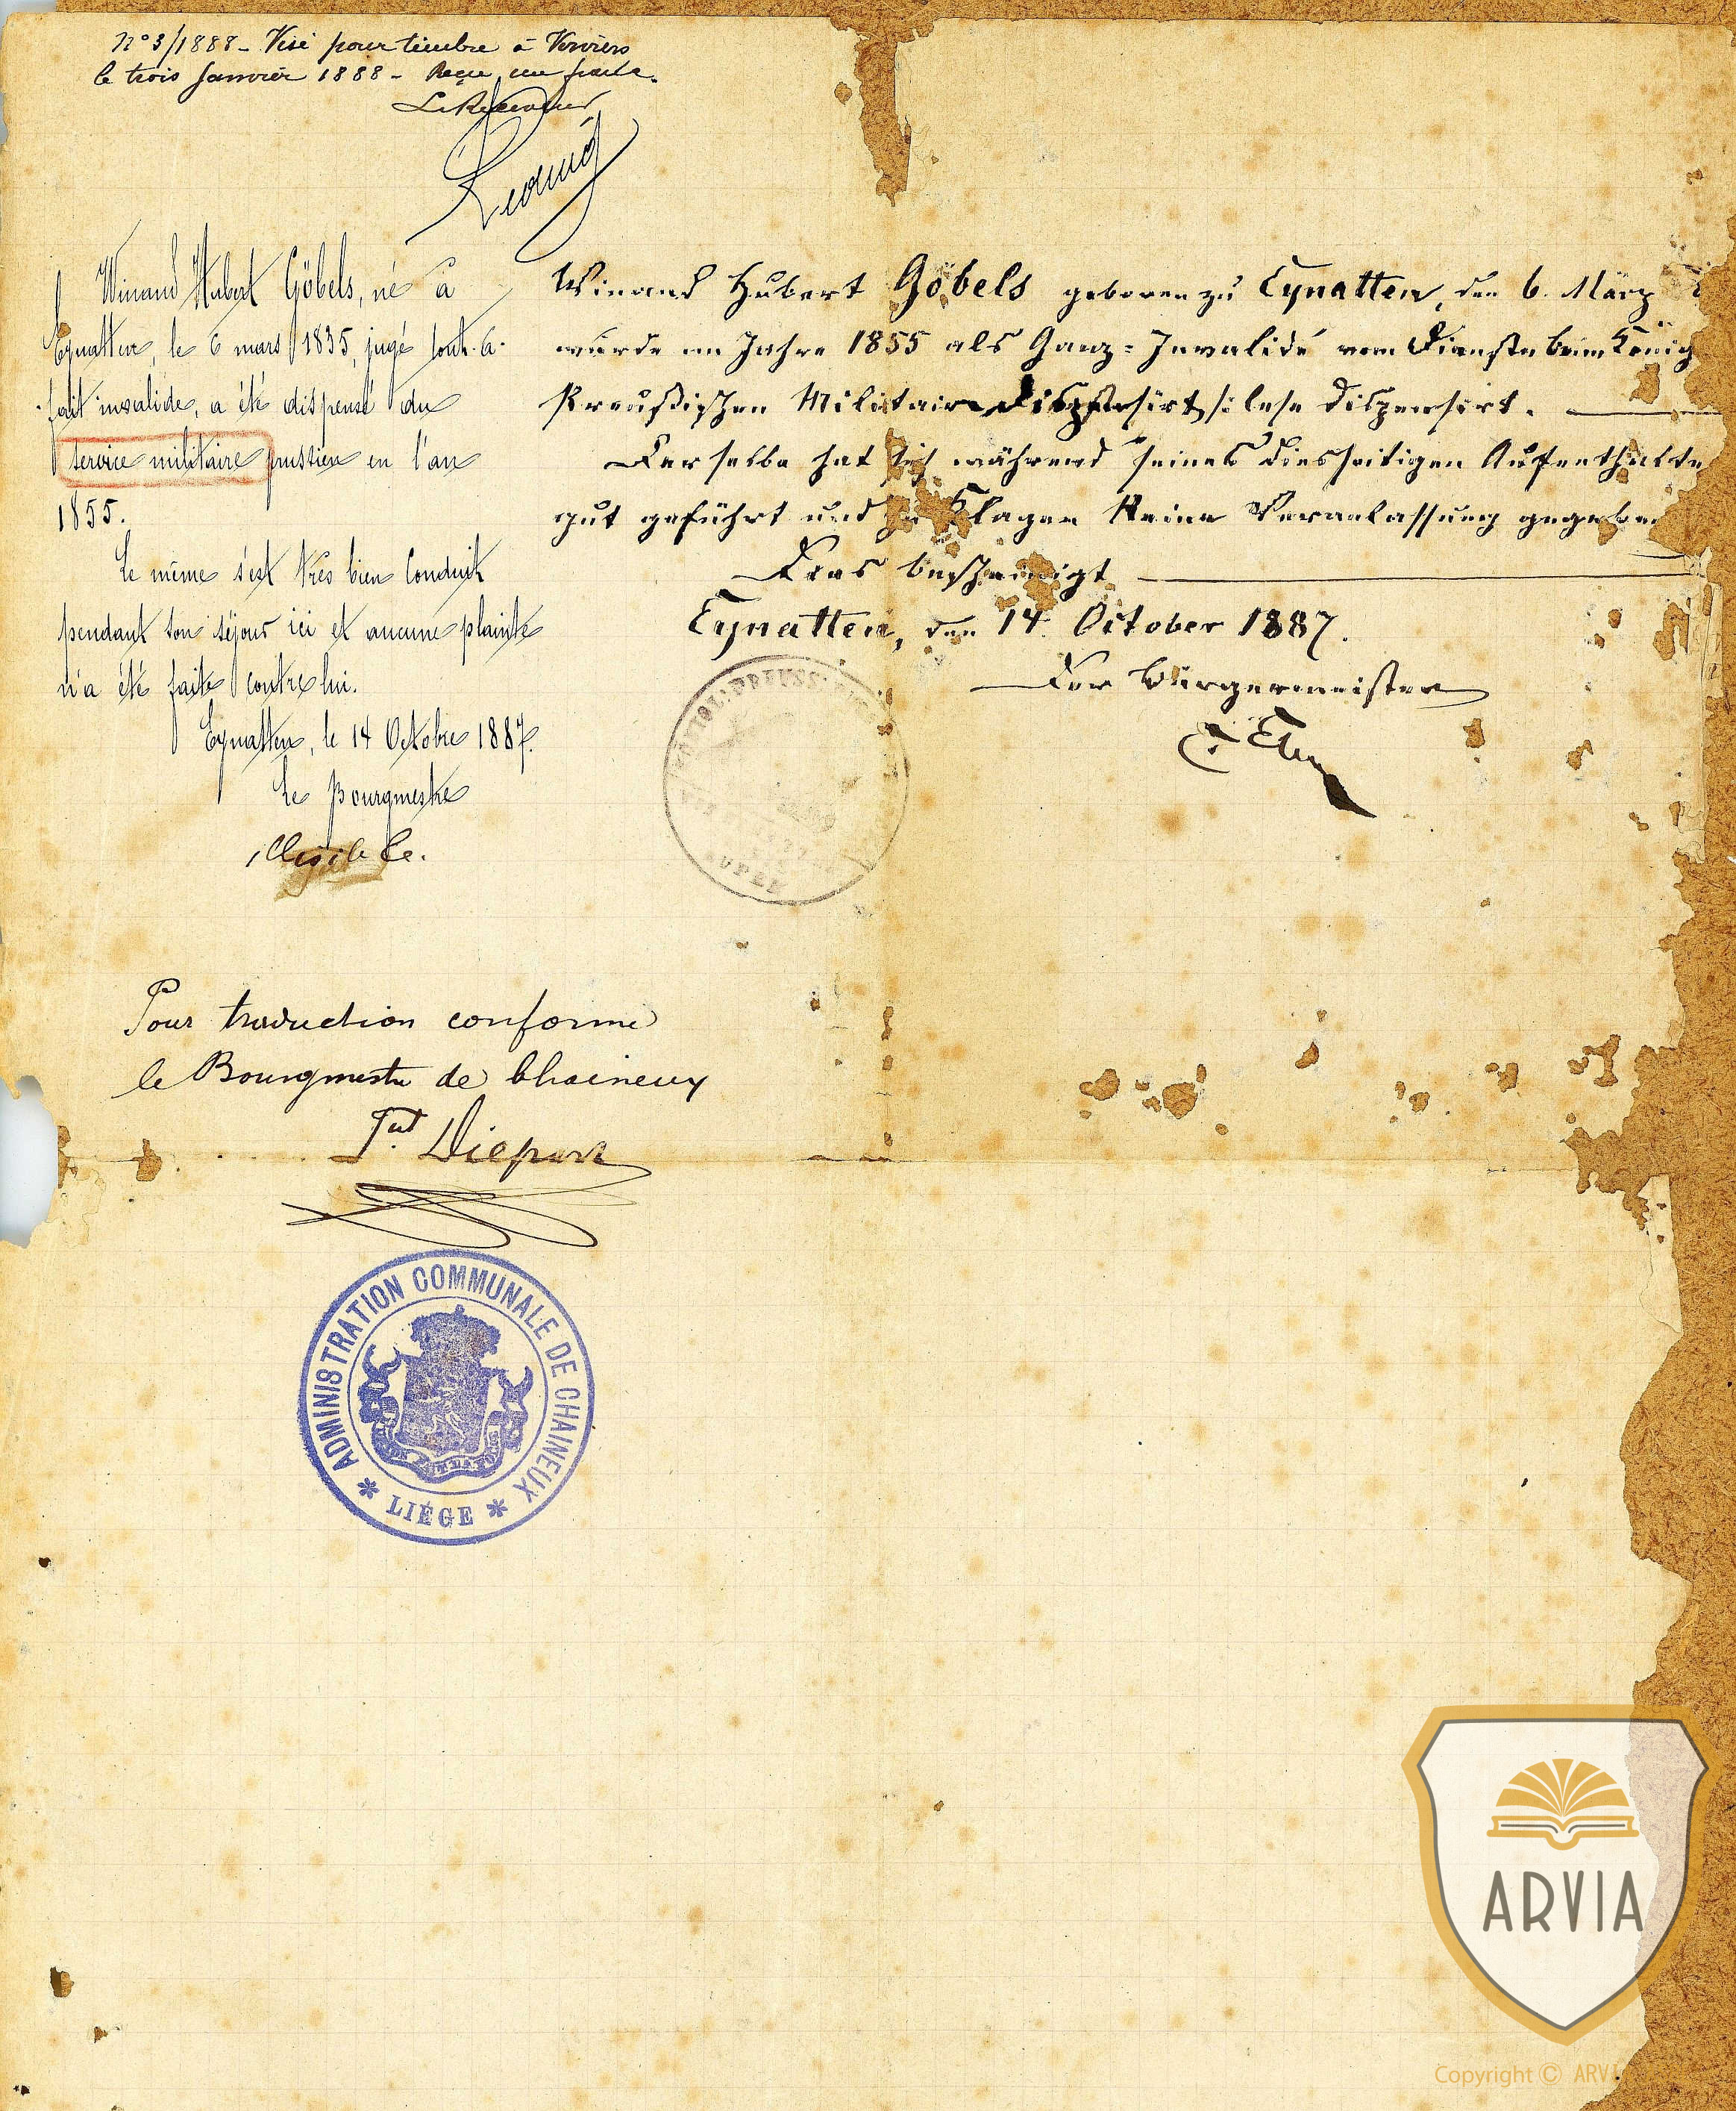 N° 3/1888 - Visé pour timbre à Verviers
le trois Janvier 1888 - Reçu un franc.
Le Receveur
Winand Hubert Göbels, né à
Eynatten, le 6 mars 1835, jugé tout-à-
fait invalide, a été dispensé du
service militaire prussien en l'an
1855.
Le même s'est très bien conduit
pendant son séjour ici et aucune plainte
n'a été faite contre lui.
Eynatten, le 14 Octobre 1887.
Le Bourgmestre
illisible.
Winand Hubert Göbels geboren zu Eynatten, den 6. März
wurde im Jahre 1855 als Ganz-Invalide vom Dienste beim König
Preußischen Militair dispensirt /: lese dispensirt.
Derselbe hat sich während seines diesseitigen Aufenthalte
gut geführt und zu Klagen keine Veranlassung gegeben
Dies bescheinigt
Eynatten, den 14. October 1887.
Der Bürgermeister
Pour traduction conforme
le Bourgmestre de Chaineux
ADMINISTRATION COMMUNALE DE CHAINEUX
* LIÉGE *
ARVIA
Copyright © ARVI